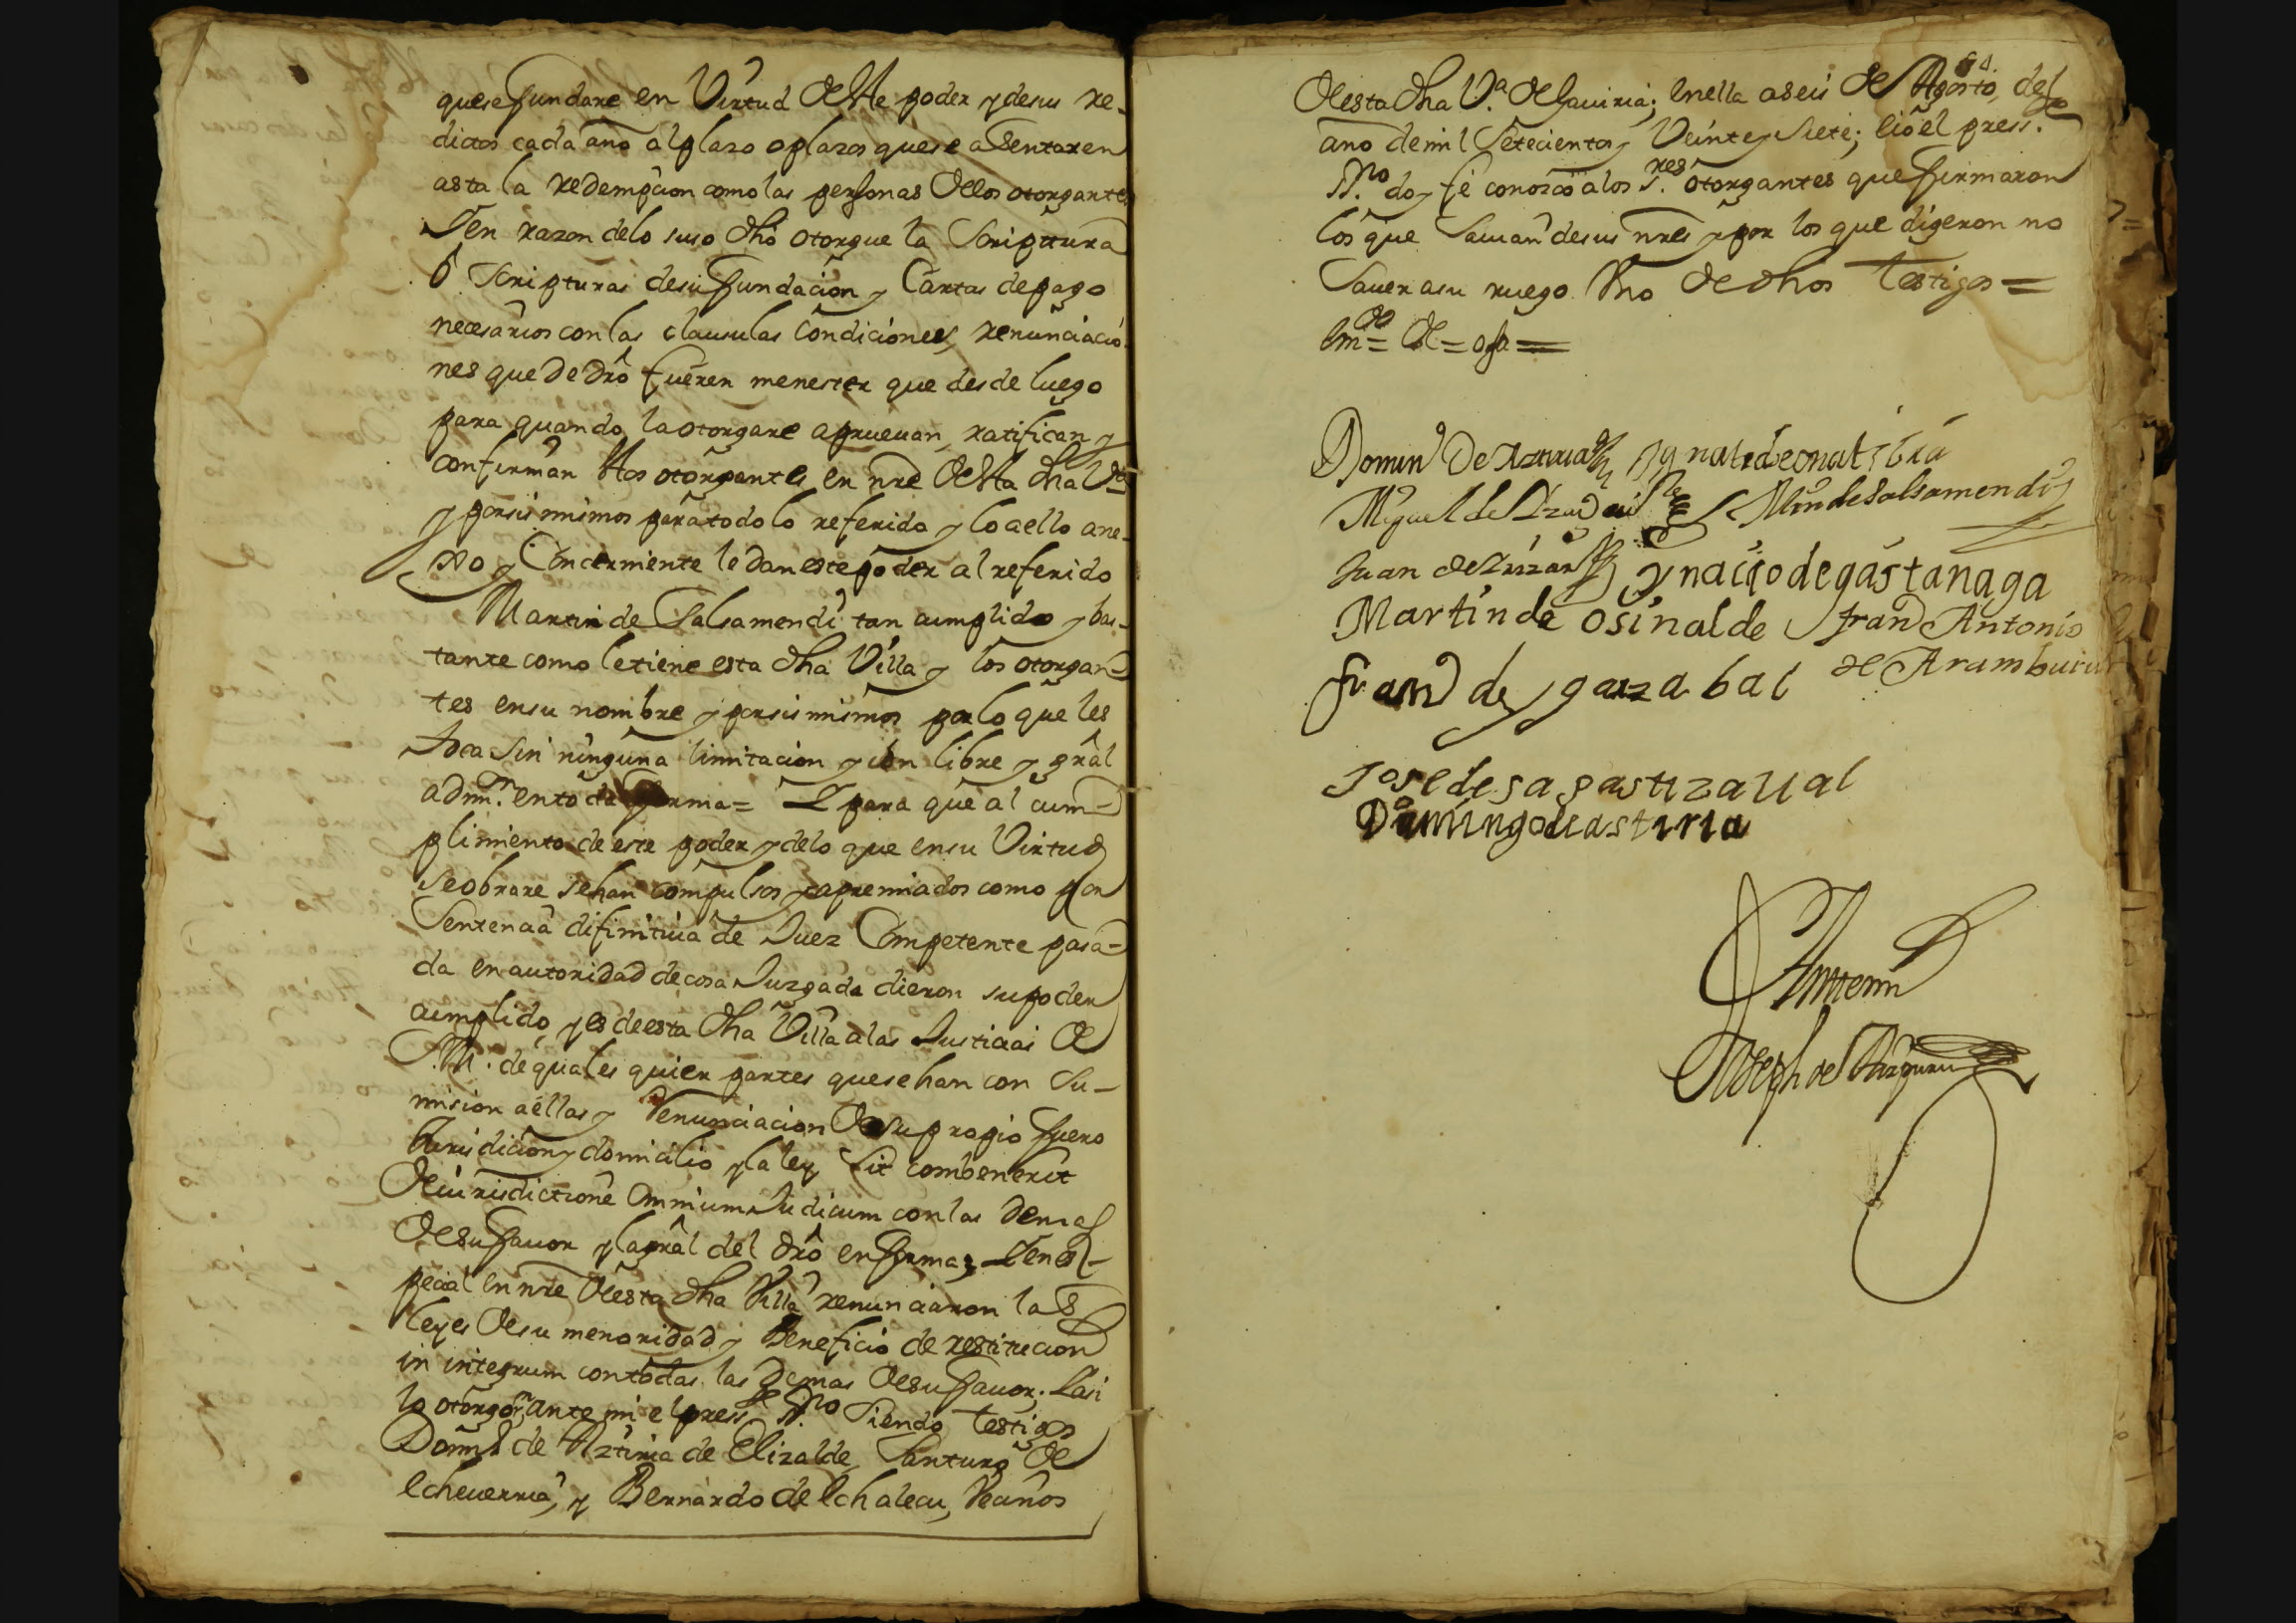 quese fundare en Virtud deste poder y desus re-
ditos cada año al plaso o plasos quese asentaren
asta la redempcion como las personas delos otorgantes
Y en razon delo suso dho otorgue la Scripttura
ô Scripturas desu fundacion y Cartas de pago
necesarios con las clausulas condiciones, renunciacio
nes que de drô fueren menester que desde luego
para quando la otorgare aprueuan, ratifican y
confirman Ktos otorgantes en nre desta dha Vª
y porsi mismos para todo lo referido y lo aello ane-
xo y Concerniente le dan este poder al referido
Martin de Salsamendi tan cumplido y bas-
tante como le tiene esta dha Villa y los otorgan-
tes ensu nombre y porsi mismos por lo que les
toca sin ninguna limitacion y con libre y grâl
admon. en toda forma = Y para que al cum-
plimiento de este poder y delo que ensu Virtud
seobrare sehan compulsos y apremiados como por
Sentencia difinitiua de Juez Competente pasa-
da en autoridad de cosa Juzgada dieron su poder
cumplido, y es de esta dha Villa alas Justicias de
S.M. de quales quier partes quesehan con su-
mision aellas y Renunciacion de su propio fuero
Jurisdicion y domicilio y la ley sit combenerit
de iurisdictione omnium Judicum con las demas
desu fauor y la grâl del drô en forma; Y en es-
pecial en nre desta dha Villa renunciaron las
leyes desu menoridad y Beneficio de restitucion
in integrum con todas las demas desu fauor; Y asi
lo otorgon. ante mi el presste. Sno siendo testigos
Domin de Aztiria de Elizalde, Santuro de
Echeuerria, y Bernardo de Echalecu, Vecinos
desta dha Vª de Gauiria; en ella a seis de Agosto, del
año de mil Setecientos y Veinte y Siete; e io el presste.
Sno doy fé conozco a los Sres. otorgantes que firmaron
los que Sauian desus nres y por los que digeron no
Sauer asu ruego Uno de dhos testigos =
Emdo = de = ofa =
Domin de Aztiria Ygnacio deonatibia
Miguel de Min de Salsamendi
Juan de ynacio de gastanaga
Martin de osinalde fran Antonio
de Aramburu
fran de ygarzabal
Jose de sagastizaual
Domingo de astiria
Antemi
Joseph de Aizpuru